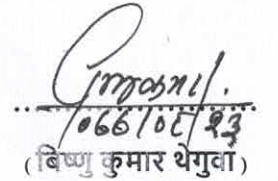 ०६६/०८/२३
(बिष्णु कुमार थेगुवा)